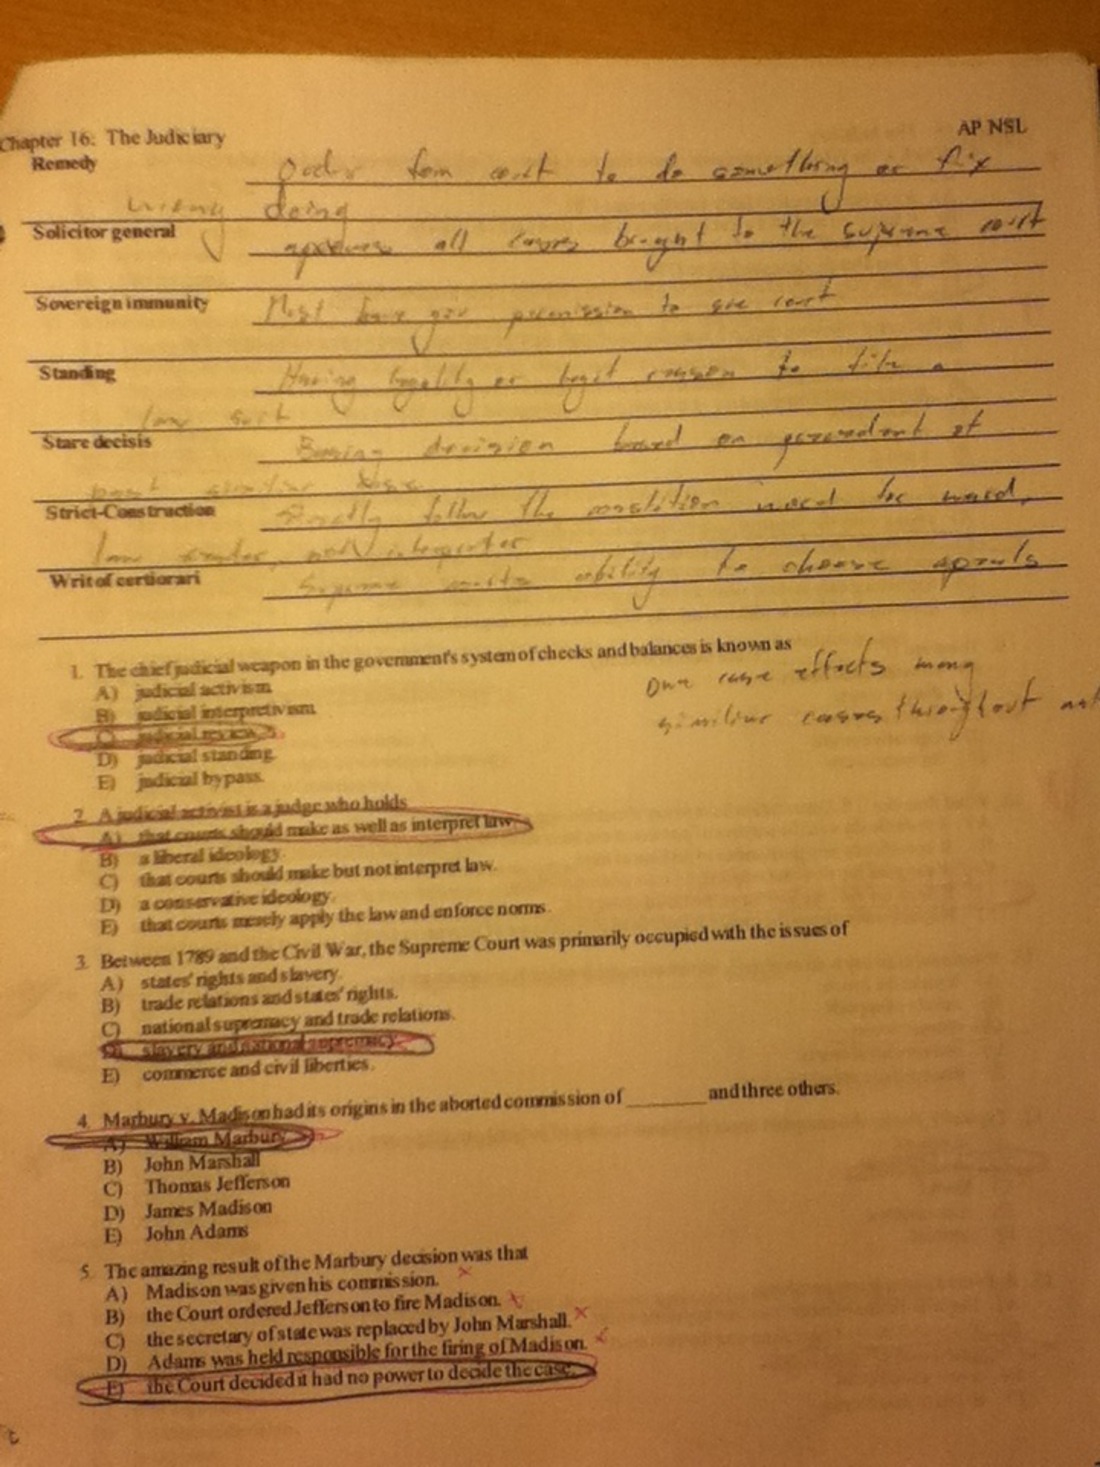 Chapter 16: The Judiciary
AP NSL
Remedy
Order from court to do something or fix
wrong doing
Solicitor general
approves all cases brought to the supreme court
Sovereign immunity
Must have gov permission to sue court
Standing
Having legality or legit reason to file a
law suit
Stare decisis
Basing decision based on precedent of
past similiar
Strict-Construction
Strictly follow the word for word,
law
Writ of certiorari
Supreme courts ability to choose
1. The chief judicial weapon in the government's system of checks and balances is known as
A) judicial activism
B) judicial interpretivism
C) judicial review
D) judicial standing.
E) judicial bypass.
one case effects many
similiar cases throughout
2. A judicial activist is a judge who holds
A) that courts should make as well as interpret law.
B) a liberal ideology.
C) that courts should make but not interpret law.
D) a conservative ideology.
E) that courts merely apply the law and enforce norms.
3. Between 1789 and the Civil War, the Supreme Court was primarily occupied with the issues of
A) states' rights and slavery.
B) trade relations and states' rights.
C) national supremacy and trade relations.
D) slavery and national supremacy.
E) commerce and civil liberties.
4. Marbury v. Madison had its origins in the aborted commission of ________ and three others.
A) William Marbury
B) John Marshall
C) Thomas Jefferson
D) James Madison
E) John Adams
5. The amazing result of the Marbury decision was that
A) Madison was given his commission.
B) the Court ordered Jefferson to fire Madison.
C) the secretary of state was replaced by John Marshall.
D) Adams was held responsible for the firing of Madison.
E) the Court decided it had no power to decide the case.